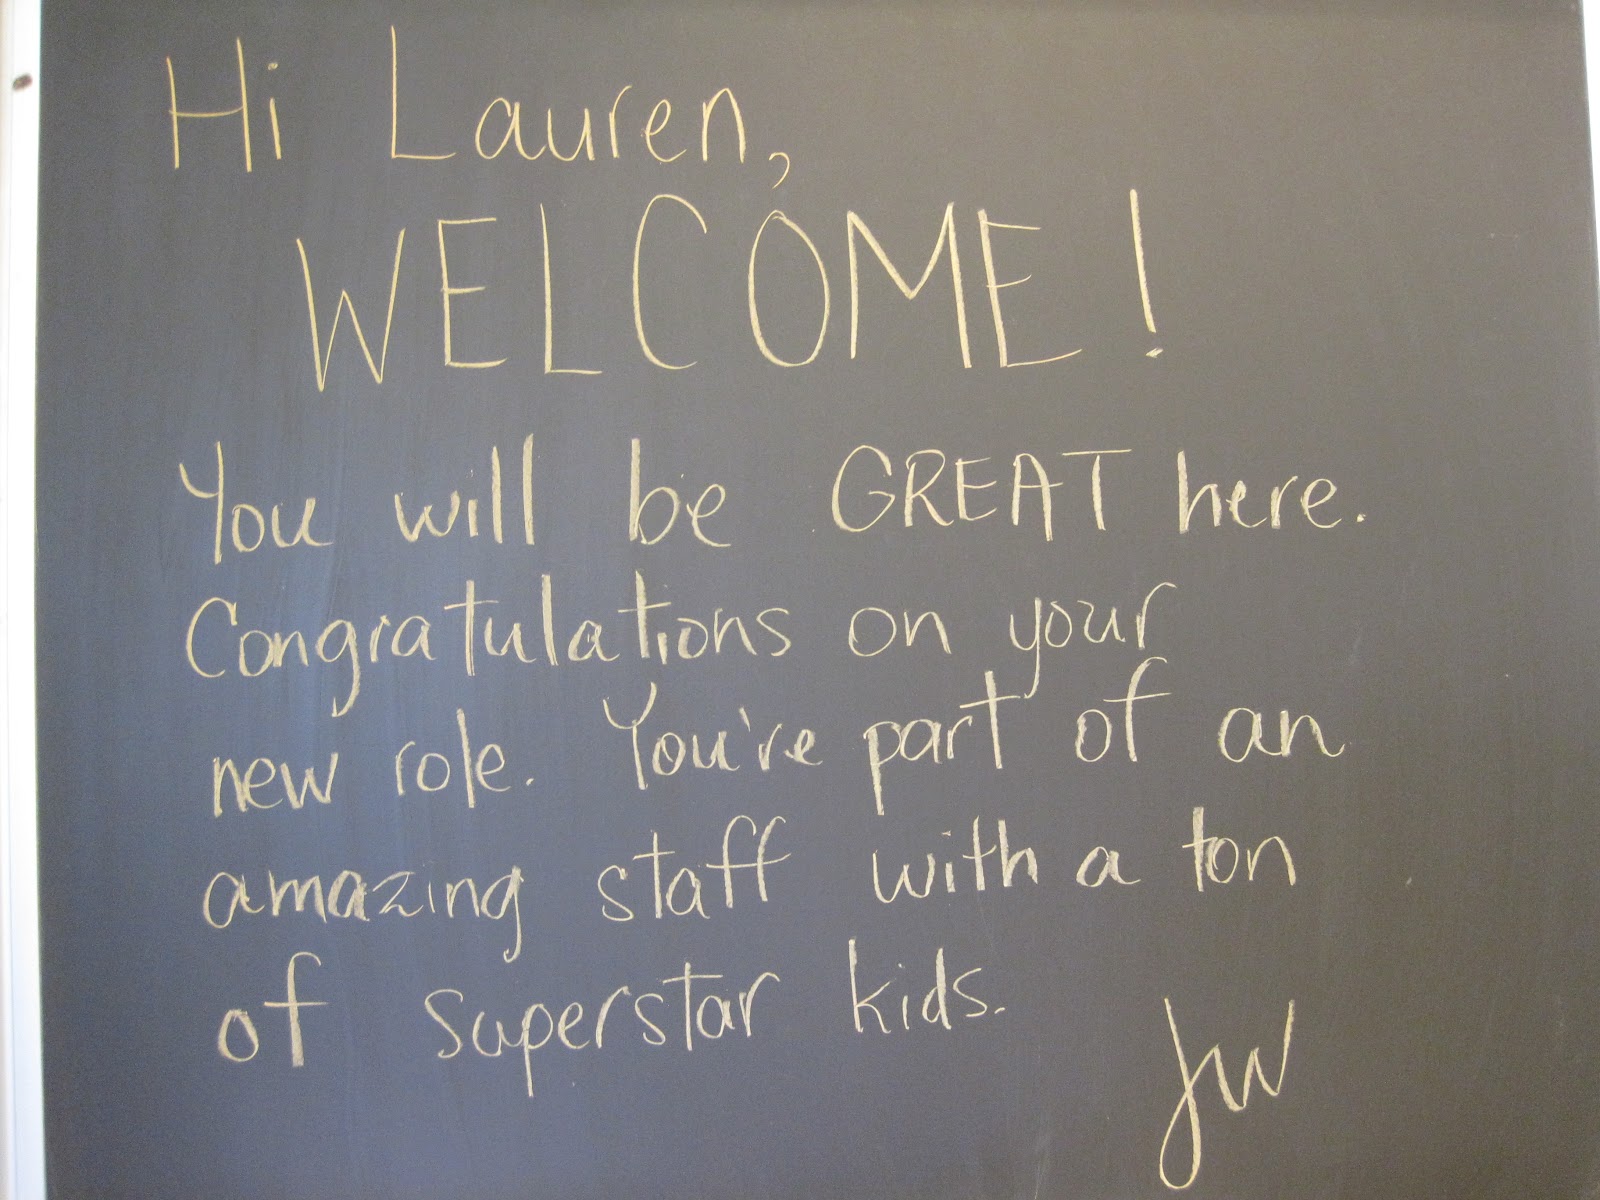 Hi Lauren,
WELCOME!
You will be GREAT here.
Congratulations on your
new role. You're part of an
amazing staff with a ton
of superstar kids.
JW